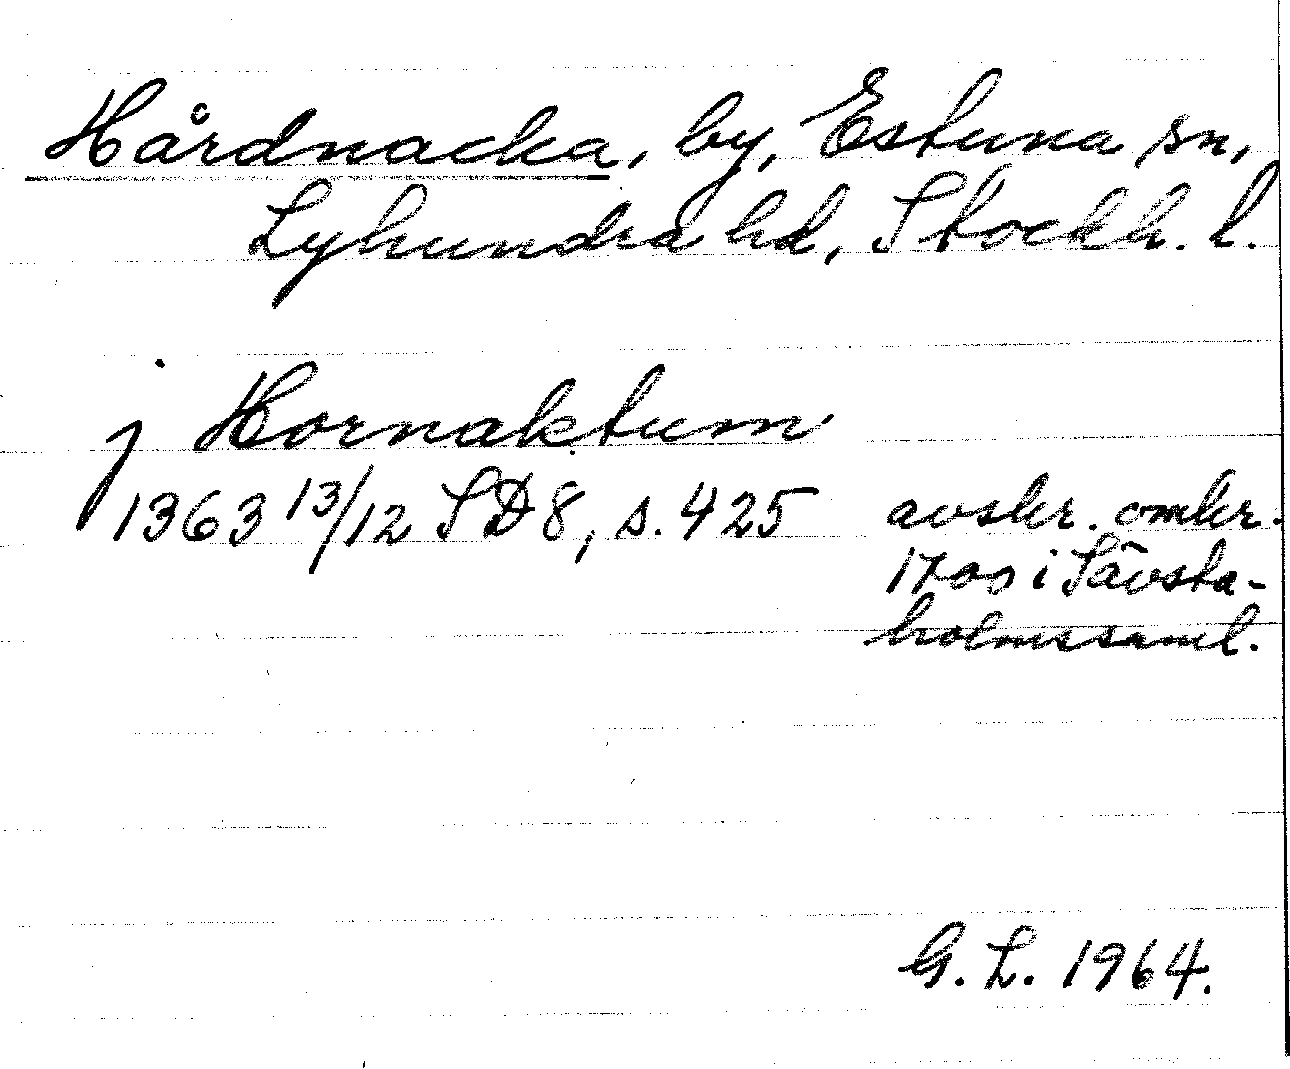 Hårdnacka, by, Estuna sn,
Lyhundra hd, Stockh. l.
j Hornaktum
1363 13/12 SD 8, s. 425 avskr. omkr.
1700 i Sävsta-
holmssaml.
G. L. 1964.